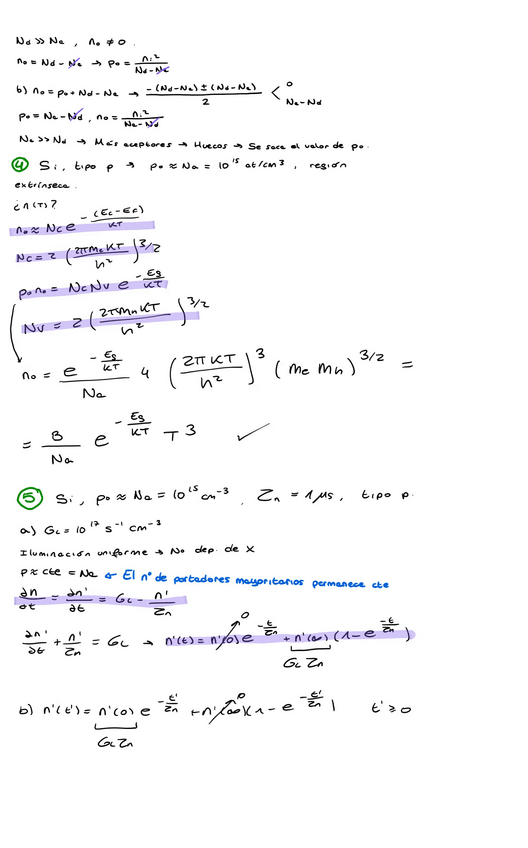 Nd >> Na , n₀ ≠ 0.
n₀ = Nd - Na → p₀ = ni² / (Nd - Na)
b) n₀ = p₀ + Nd - Na → (-(Nd - Na) ± (Nd - Na)) / 2 < 0 , Na - Nd
p₀ = Na - Nd , n₀ = ni² / (Na - Nd)
Na >> Nd → Más aceptores → Huecos → Se saca el valor de p₀.
④ Si, tipo p → p₀ ≈ Na = 10¹⁵ at/cm³ , región
extrínseca.
¿n(T)?
n₀ ≈ Nc e^(-(Ec - EF)/KT)
Nc = 2 (2πme KT / h²)^3/2
p₀ n₀ = Nc Nv e^(-Eg/KT)
Nv = 2 (2πmh KT / h²)^3/2
n₀ = (e^(-Eg/KT) / Na) 4 (2πKT / h²)³ (me mh)^3/2 =
= (B / Na) e^(-Eg/KT) T³ ✓
⑤ Si, p₀ ≈ Na = 10¹⁵ cm⁻³ , Zn = 1 μs , tipo p.
a) GL = 10¹⁷ s⁻¹ cm⁻³
Iluminación uniforme → No dep. de x
p ≈ cte = Na ← El nº de portadores mayoritarios permanece cte
∂n/∂t = ∂n'/∂t = GL - n'/Zn
∂n'/∂t + n'/Zn = GL → n'(t) = n'(0) e^(-t/Zn) + n'(∞) (1 - e^(-t/Zn))
0
GL Zn
b) n'(t') = n'(0) e^(-t'/Zn) + n'(∞)(1 - e^(-t'/Zn)) t' ≥ 0
0
GL Zn